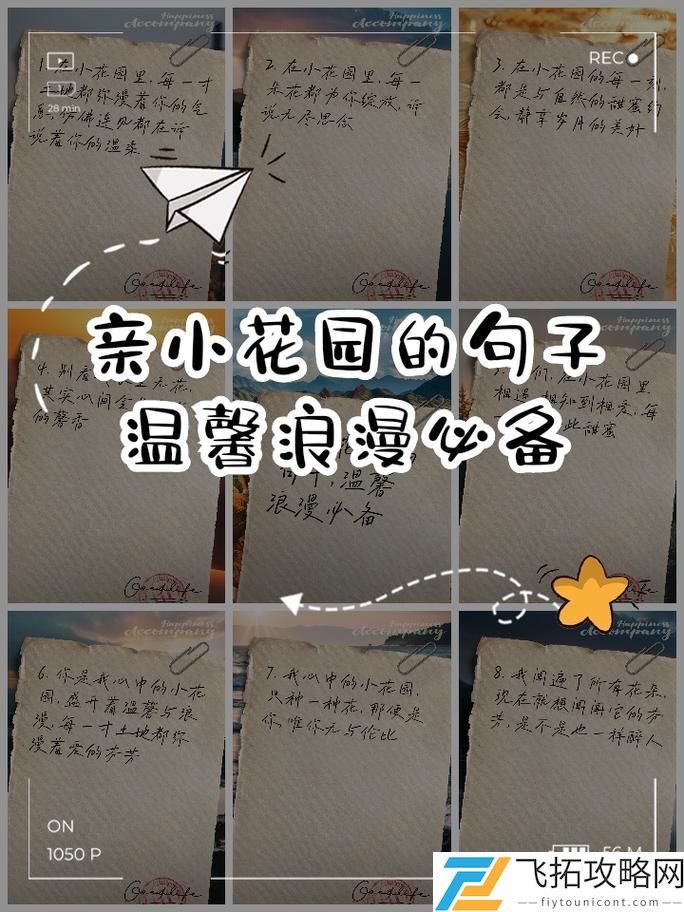 Happiness
Accompany
Happiness
Accompany
REC
28 min
1. 在小花园里,每一寸
土地都弥漫着你的气
息,仿佛连风都在诉
说着你的温柔
Goodlife
2. 在小花园里,每一
朵花都为你绽放,诉
说无尽思念
Goodlife
3. 在小花园的每一刻,
都是与自然的甜蜜约
会,静享岁月的美好
Goodlife
亲小花园的句子
温馨浪漫必备
4. 别看
其实心间
的馨香
Goodlife
温馨
浪漫必备
们,在小花园里
相遇 相知到相爱,每
此甜蜜
Happiness
Accompany
6. 你是我心中的小花
园,盛开着温馨与浪
漫,每一寸土地都弥
漫着爱的芬芳
Goodlife
Happiness
Accompany
7. 我心中的小花园,
只种一种花,那便是
你,唯你无与伦比
Goodlife
Happiness
Accompany
8. 我闻遍了所有花朵,
现在就想闻闻它的芬
芳,是不是也一样醉人
ON
1050 P
56 M
飞拓攻略网
fiytounicont.com